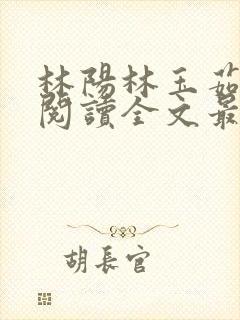 林陽林玉茹
閱讀全文最
胡長官